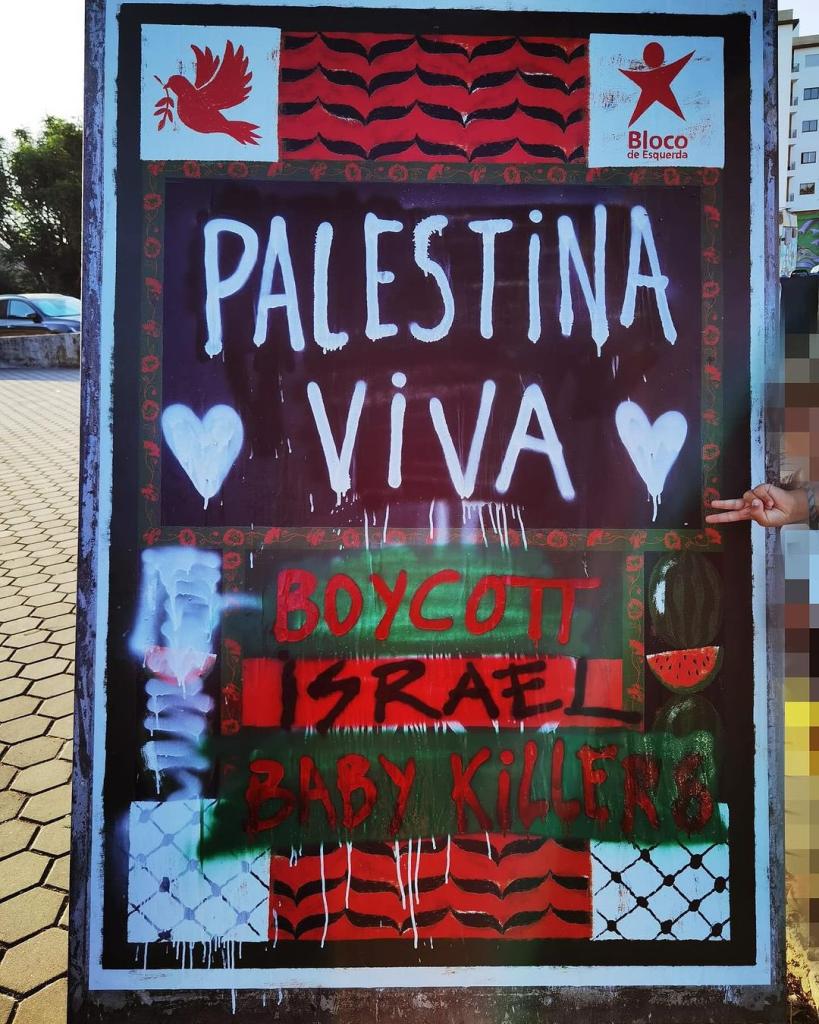 Bloco
de Esquerda
PALESTiNA
ViVA
BOYCOTT
iSRAEL
BABY KiLLERS